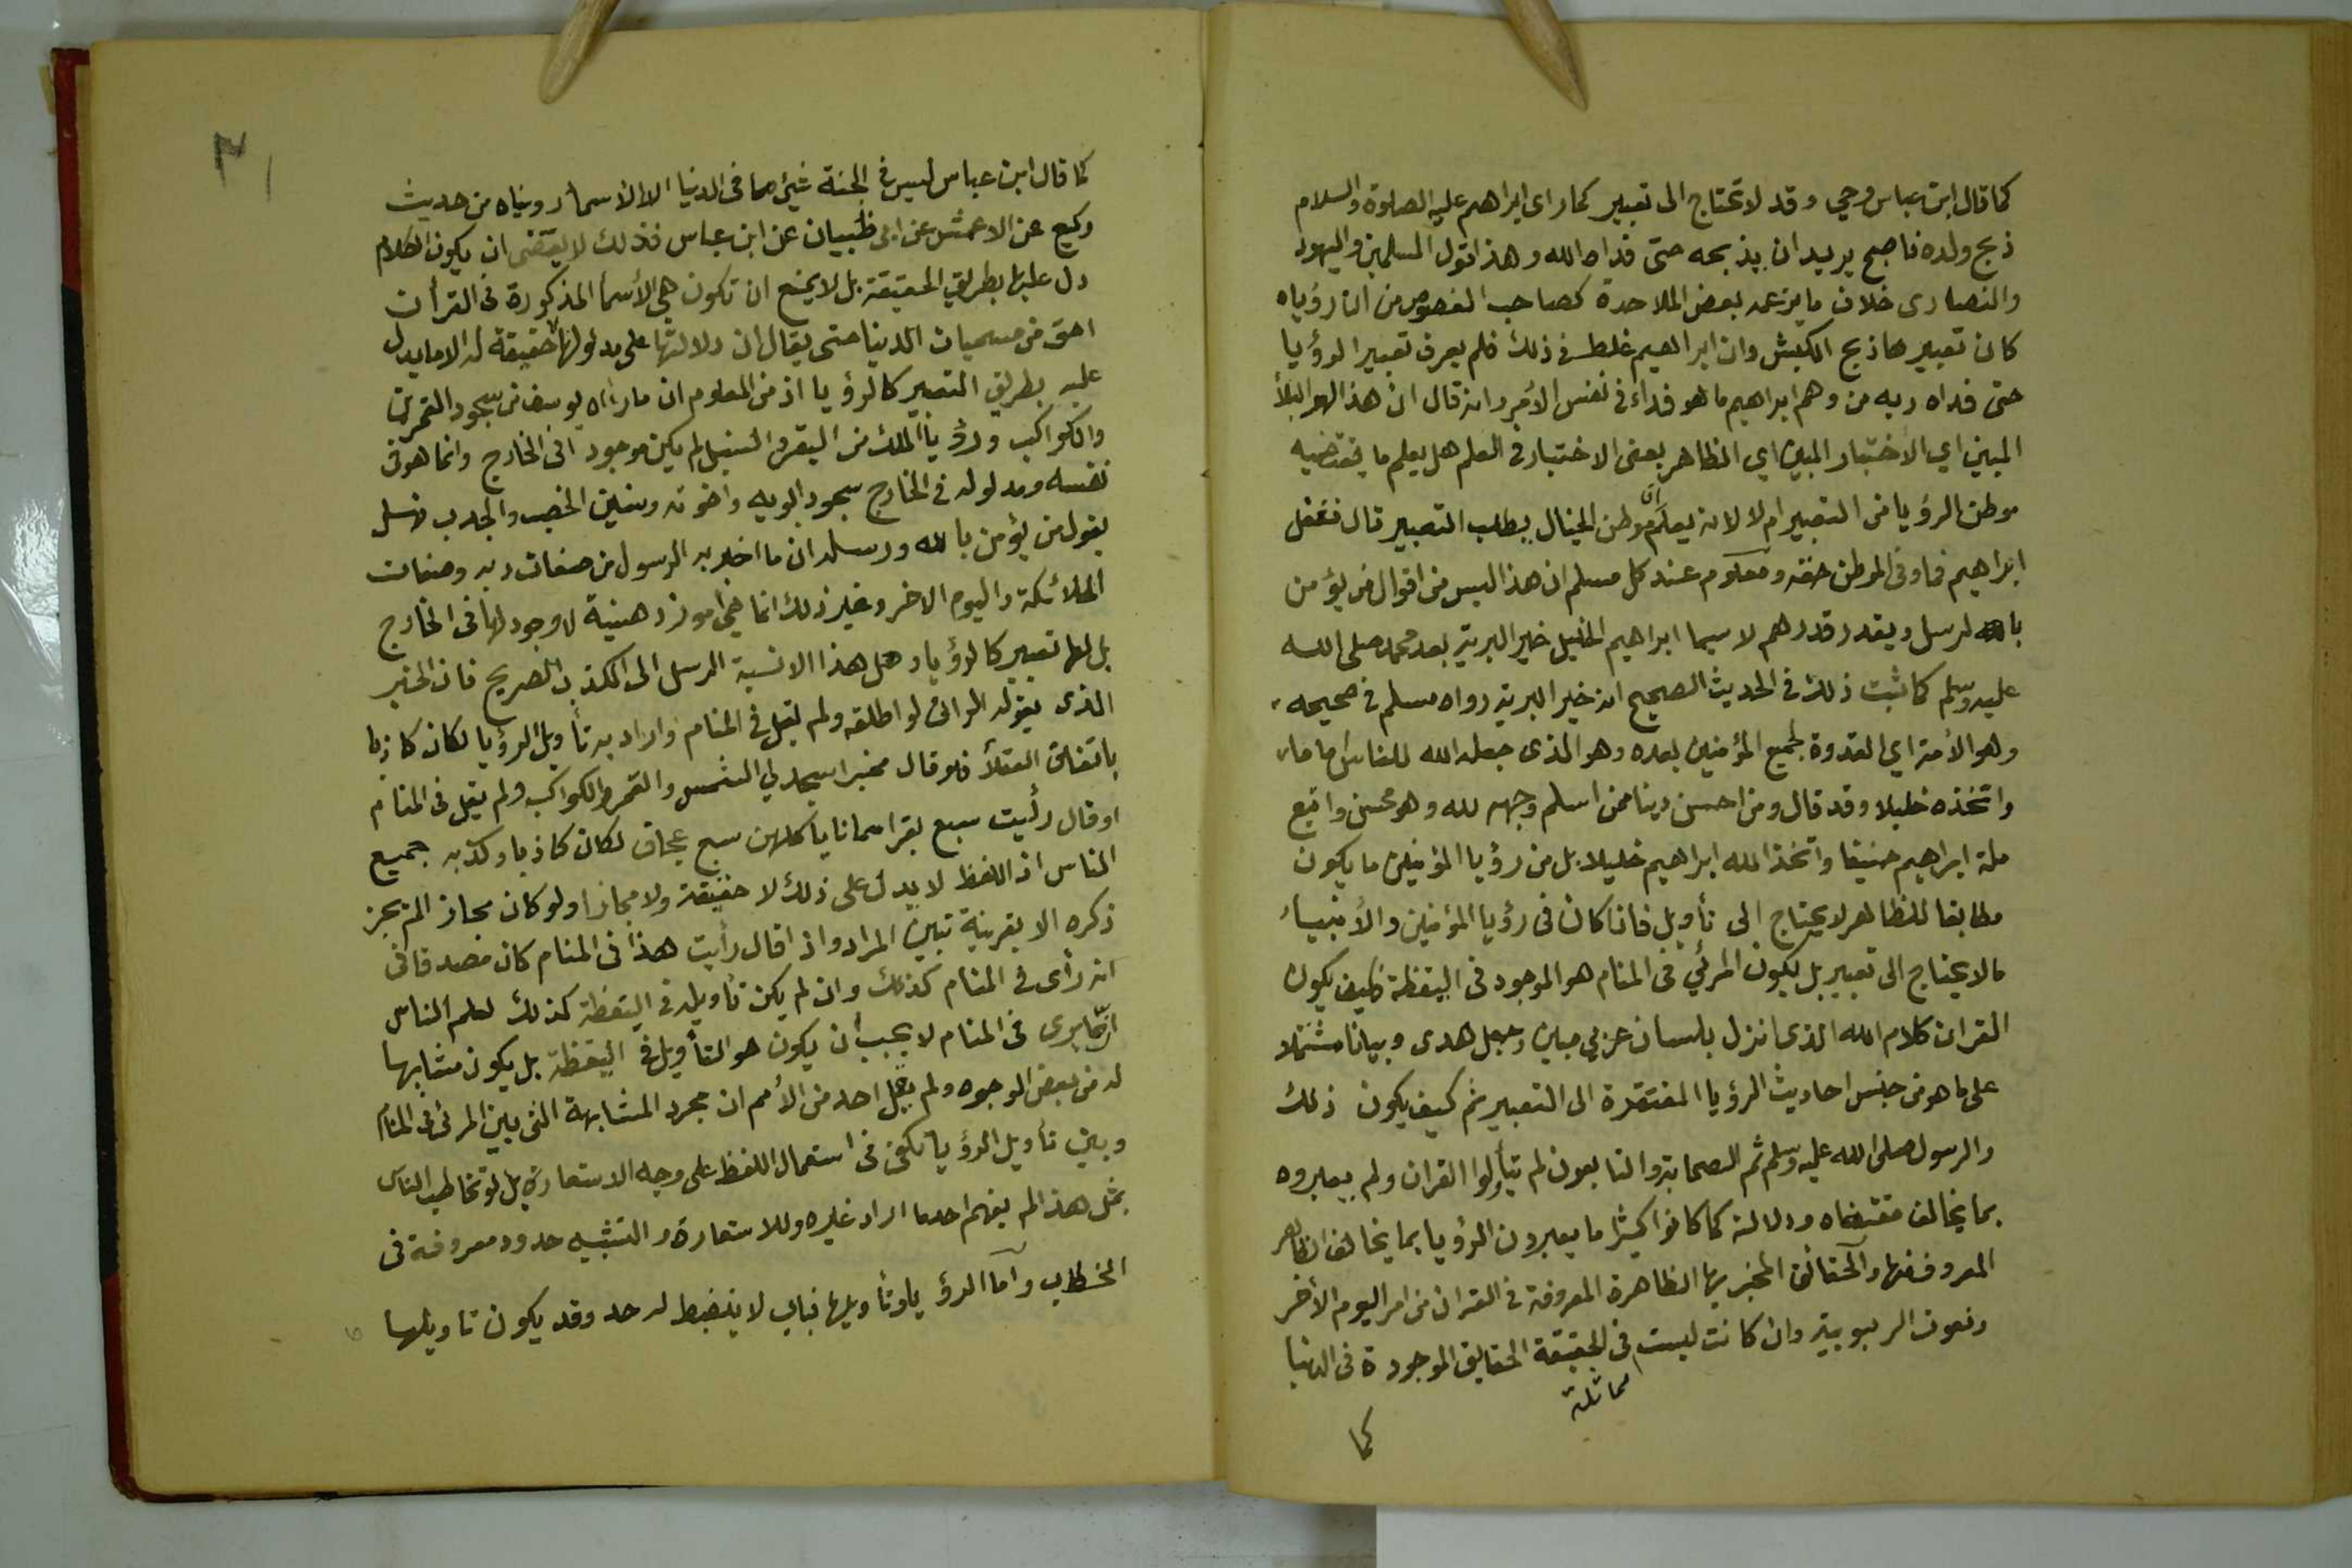 كما قال ابن عباس وحي وقد لا تحتاج الى تعبير كما راى ابراهيم عليه الصلوة والسلام
ذبح ولده فاصبح يريد ان يذبحه حتى فداه الله وهذا قول المسلمين واليهود
والنصارى خلاف ما يزعمه بعض الملاحدة كصاحب الفصوص من ان رؤياه
كان تعبيرها ذبح الكبش وان ابراهيم غلط فى ذلك فلم يعرف تعبير الرؤيا
حتى فداه ربه من وهم ابراهيم ما هو فداء فى نفس الأمر وانه قال ان هذا لهو البلأ
المبين اي الاختبار المبين اي الظاهر بعنى الاختبار فى العلم هل يعلم ما يقتضيه
موطن الرؤيا من التعبير ام لا لانه يعلم ان موطن الخيال يطلب التعبير قال فغفل
ابراهيم فما وفى الموطن حقه ومعلوم عند كل مسلم ان هذا ليس من اقوال من يؤمن
بالله لرسل ويقدر قدرهم لا سيما ابراهيم الخليل خير البرية بعد محمد صلى الله
عليه وسلم كما ثبت ذلك فى الحديث الصحيح انه خير البرية رواه مسلم فى صحيحه
وهو الأمة اي القدوة لجميع المؤمنين بعده وهو الذى جعله الله للناس اماما
واتخذه خليلا وقد قال ومن احسن دينا ممن اسلم وجهه لله وهو محسن واتبع
ملة ابراهيم حنيفا واتخذ الله ابراهيم خليلا بل من رؤيا المؤمنين ما يكون
مطابقا للظاهر لا يحتاج الى تأويل فاذا كان فى رؤيا المؤمنين والأنبياء
مالا يحتاج الى تعبير بل يكون المرئي فى المنام هو الموجود فى اليقظة فكيف يكون
القران كلام الله الذى انزل بلسان عربي مبين وجعل هدى وبيانا مشتملا
على ما هو من جنس احاديث الرؤيا المفتقرة الى التعبير ثم كيف يكون ذلك
والرسول صلى الله عليه وسلم ثم الصحابة والتابعون لم يتأولوا القران ولم يعبروه
بما يخالف مقتضاه ودلالته كما كانوا كثيرا ما يعبرون الرؤيا بما يخالف الظاهر
المعروف منها والحقائق المخبر بها الظاهرة المعروفة فى القران من امر اليوم الأخر
ونعوت الربوبية وان كانت ليست فى الحقيقة الحقايق الموجودة فى الدنيا
مماثلة
كما
٣١
كما قال ابن عباس ليس فى الجنة شئ مما فى الدنيا الا الأسمأ رويناه من حديث
وكيع عن الاعمش عن ابى ظبيان عن ابن عباس فذلك لا يقتضى ان يكون الكلام
دل عليها بطريق الحقيقة بل لا يمنع ان تكون هي الأسمأ المذكورة فى القرأن
احق من مسميات الدنيا حتى يقال ان دلالتها على مدلولها حقيقة له الا ما يدل
عليه بطريق التعبير كالرؤيا اذ من المعلوم ان ما رأاه يوسف من سجود القمرين
والكواكب ورؤيا الملك من البقر والسنبل لم يكن موجودا فى الخارج وانما هو فى
نفسه ومدلوله فى الخارج سجود ابويه واخوته وسنين الخصب والجدب فهل
يقول من يؤمن بالله ورسله ان ما اخبر به الرسول من صفات ربه وصفات
الملائكة واليوم الاخر وغير ذلك انما هي أمور ذهنية لا وجود لها فى الخارج
بل لها تعبير كالرؤيا وهل هذا الا نسبة الرسل الى الكذب الصريح فان الخبر
الذى يقوله الرائ لو اطلقه ولم يقل فى المنام واراد به تأويل الرؤيا لكان كاذبا
باتفاق العقلأ فلو قال مخبرا سجد لي الشمس والقمر والكواكب ولم يقل فى المنام
او قال رأيت سبع بقرا سمانا ياكلهن سبع عجاف لكان كاذبا وكذبه جميع
الناس اذ اللفظ لا يدل على ذلك لا حقيقة ولا مجازا ولو كان مجازا لم يجز
ذكره الا بقرينة تبين المراد واذا قال رأيت هذا فى المنام كان مصدقا فى
انه رأى فى المنام كذلك وان لم يكن تأويله فى اليقظة كذلك لعلم الناس
ان ما يرى فى المنام لا يجب ان يكون هو التأويل فى اليقظة بل يكون مشابها
له من بعض الوجوه ولم يقل احد من الأمم ان مجرد المشابهة التى بين المرئ فى المنام
وبين تأويل الرؤيا تكفى فى استعمال اللفظ على وجه الاستعارة بل لو تخاطب الناس
بمثل هذا لم يفهم احد ما اراد غيره وللاستعارة والتشبيه حدود معروفة فى
الخطاب وأما الرؤيا وتأويلها فباب لا ينضبط له حد وقد يكون تاويلها